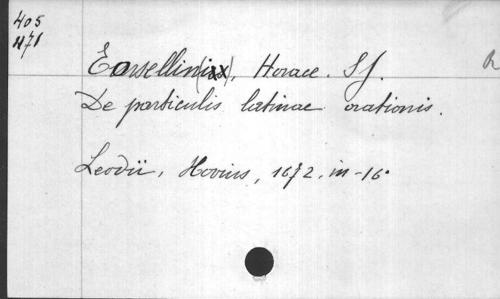 405
471
Torsellini(us), Horace. S.J.
De particulis latinae orationis.
Leodii, Hovius, 1672. in-16°